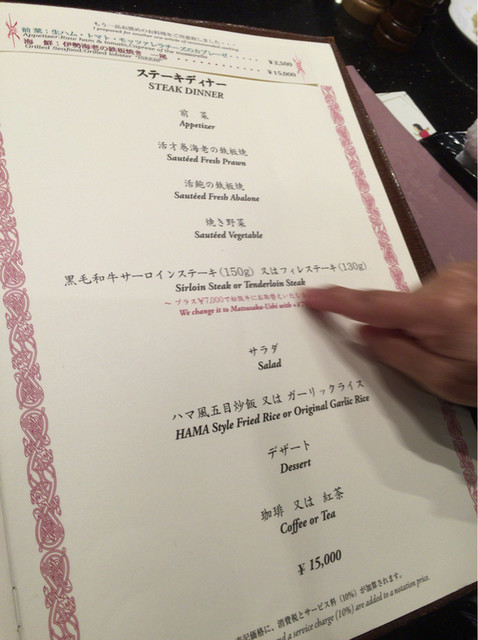 もう一品お勧めのお料理をご用意致しました・・・
I prepared for another one article of recommended cooking
前菜：生ハム・トマト・モッツァレラチーズのカプレーゼ・・・・・ ¥2,500
Appetizer:Raw ham & tomato,Caprese of the mozzarella
海鮮：伊勢海老の鉄板焼き 一尾 ・・・・・・・・・・ ¥15,000
Grilled Seafood:Grilled lobster
ステーキディナー
STEAK DINNER
前菜
Appetizer
活才巻海老の鉄板焼
Sautéed Fresh Prawn
活鮑の鉄板焼
Sautéed Fresh Abalone
焼き野菜
Sautéed Vegetable
黒毛和牛サーロインステーキ(150g) 又はフィレステーキ(130g)
Sirloin Steak or Tenderloin Steak
～ プラス¥7,000で松阪牛にお取替えいたし
We change it to Matsusaka-Ushi with
サラダ
Salad
ハマ風五目炒飯 又は ガーリックライス
HAMA Style Fried Rice or Original Garlic Rice
デザート
Dessert
珈琲 又は 紅茶
Coffee or Tea
¥ 15,000
記価格に、消費税とサービス料 (10%) が加算されます。
nd a service charge (10%) are added to a notation price.